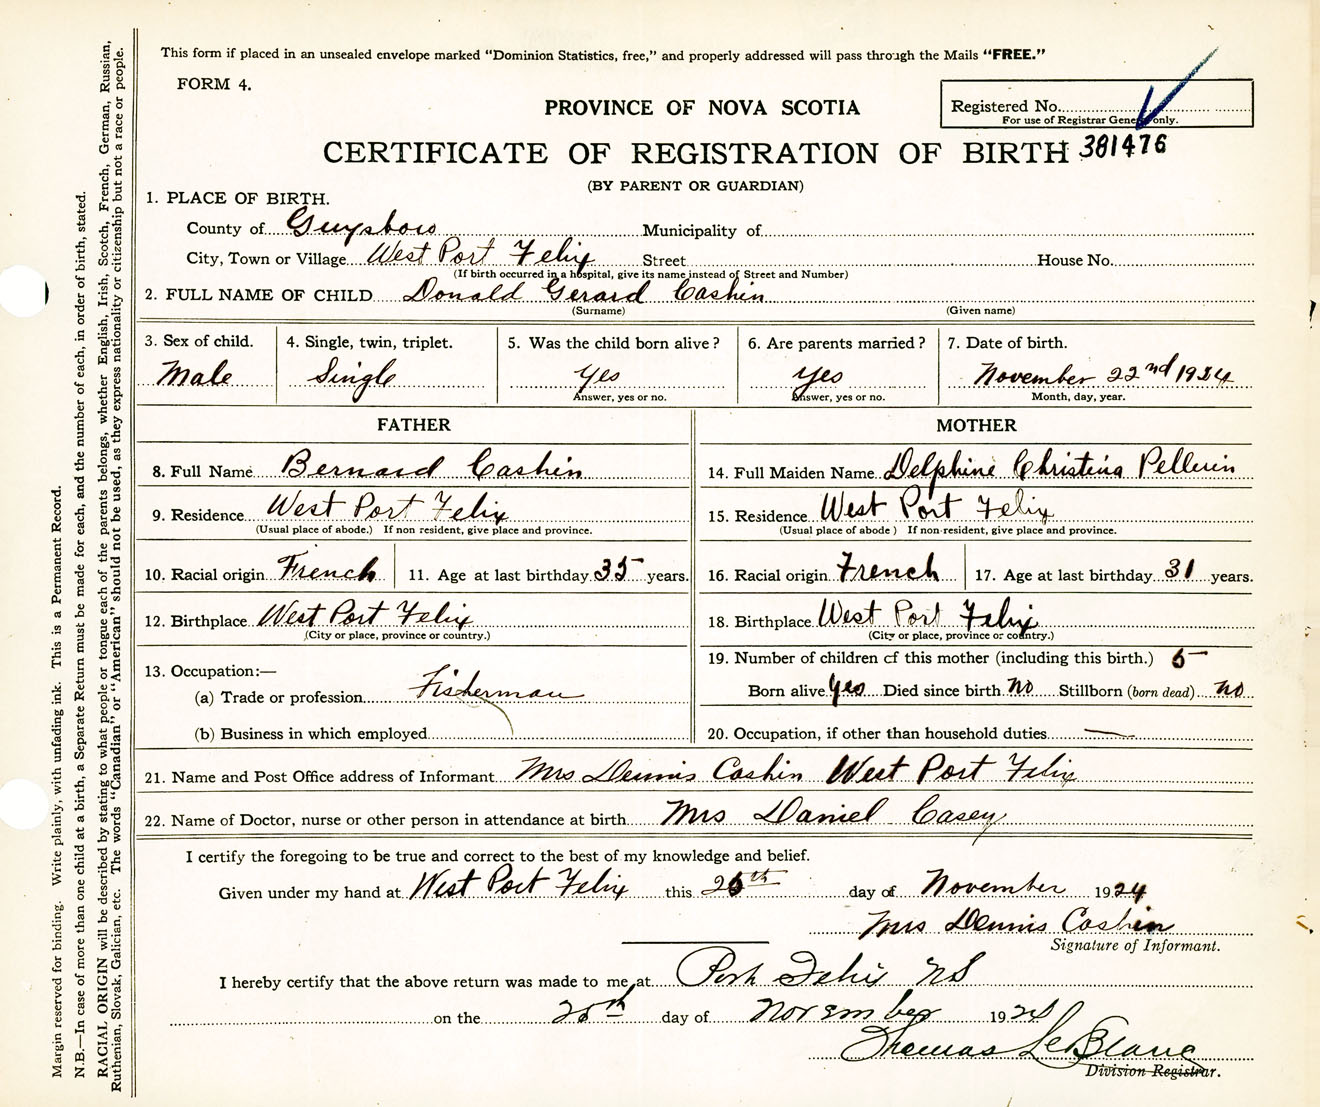 This form if placed in an unsealed envelope marked "Dominion Statistics, free," and properly addressed will pass through the Mails "FREE."
FORM 4.
PROVINCE OF NOVA SCOTIA
Registered No.
For use of Registrar General only.
CERTIFICATE OF REGISTRATION OF BIRTH 381476
(BY PARENT OR GUARDIAN)
1. PLACE OF BIRTH.
County of Guysboro Municipality of
City, Town or Village West Port Felix Street House No.
(If birth occurred in a hospital, give its name instead of Street and Number)
2. FULL NAME OF CHILD Donald Gerard Cashin
(Surname) (Given name)
3. Sex of child. 4. Single, twin, triplet. 5. Was the child born alive? 6. Are parents married? 7. Date of birth.
Male Single Yes Yes November 22nd 1924
Answer, yes or no. Answer, yes or no. Month, day, year.
FATHER MOTHER
8. Full Name Bernard Cashin 14. Full Maiden Name Delphine Christina Pellerin
9. Residence West Port Felix 15. Residence West Port Felix
(Usual place of abode.) If non resident, give place and province. (Usual place of abode) If non-resident, give place and province.
10. Racial origin French 11. Age at last birthday 35 years. 16. Racial origin French 17. Age at last birthday 31 years.
12. Birthplace West Port Felix 18. Birthplace West Port Felix
(City or place, province or country.) (City or place, province or country.)
13. Occupation:— 19. Number of children of this mother (including this birth.) 5
(a) Trade or profession Fisherman Born alive Yes Died since birth No Stillborn (born dead) no
(b) Business in which employed 20. Occupation, if other than household duties —
21. Name and Post Office address of Informant Mrs Dennis Cashin West Port Felix
22. Name of Doctor, nurse or other person in attendance at birth Mrs Daniel Casey
I certify the foregoing to be true and correct to the best of my knowledge and belief.
Given under my hand at West Port Felix this 26th day of November 1924
Mrs Dennis Cashin
Signature of Informant.
I hereby certify that the above return was made to me at Port Felix NS
on the day of November 1924
Thomas LeBlanc
Division Registrar.
Margin reserved for binding. Write plainly, with unfading ink. This is a Permanent Record.
N.B.—In case of more than one child at a birth, a Separate Return must be made for each, and the number of each, in order of birth, stated.
RACIAL ORIGIN will be described by stating to what people or tongue each of the parents belongs, whether English, Irish, Scotch, French, German, Russian,
Ruthenian, Slovak, Galician, etc. The words "Canadian" or "American" should not be used, as they express nationality or citizenship but not a race or people.